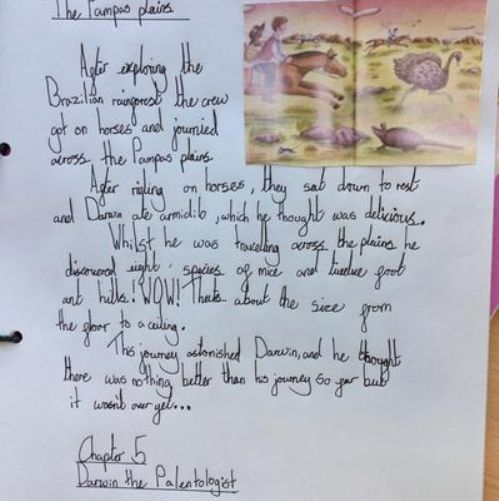 The Pampas plains
After exploring the
Brazilian rainforest the crew
got on horses and journied
across the Pampas plains
After riding on horses, they sat down to rest
and Darwin ate armidilo, which he thought was delicious.
Whilst he was travelling across the plains he
discovered eight species of mice and twelve foot
ant hills! WOW! Thats about the size from
the floor to a ceiling.
This journey astonished Darwin, and he thought
there was nothing better than his journey so far but
it wasnt over yet...
Chapter 5
Darwin the Palentologist